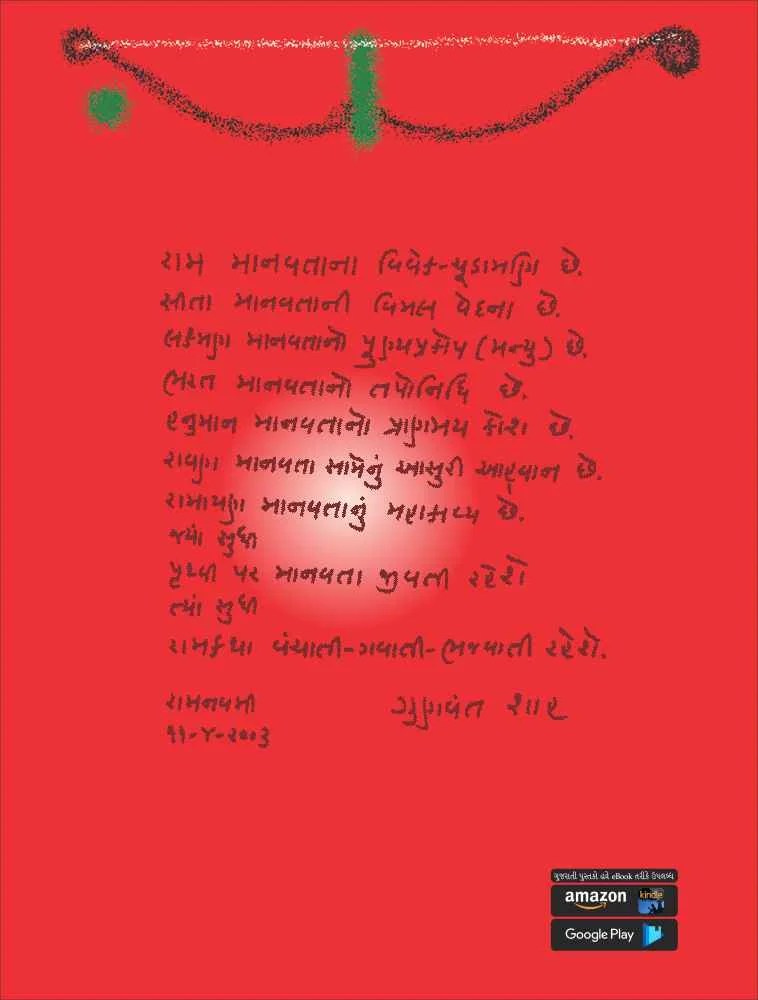 રામ માનવતાના વિવેક-ચૂડામણિ છે.
સીતા માનવતાની વિમલ વેદના છે.
લક્ષ્મણ માનવતાનો પુણ્યપ્રકોપ (મન્યુ) છે.
ભરત માનવતાનો તપોનિધિ છે.
હનુમાન માનવતાનો પ્રાણમય કોશ છે.
રાવણ માનવતા સામેનું આસુરી આહ્વાન છે.
રામાયણ માનવતાનું મહાકાવ્ય છે.
જ્યાં સુધી
પૃથ્વી પર માનવતા જીવતી રહેશે
ત્યાં સુધી
રામકથા વંચાતી-ગવાતી-ભજવાતી રહેશે.
રામનવમી
ગુણવંત શાહ
૧૧-૪-૨૦૦૩
ગુજરાતી પુસ્તકો હવે eBook તરીકે ઉપલબ્ધ
amazon kindle
Google Play